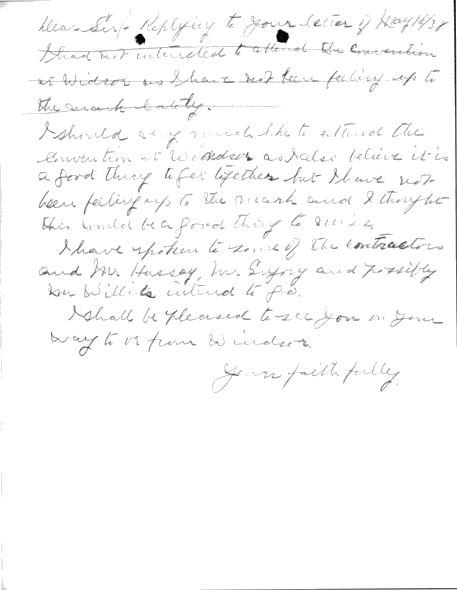 Dear Sir/- Replying to your letter of May 16/38
I had not intended to attend the Convention
at Windsor as I have not been feeling up to
the mark lately.
I should very much like to attend the
Convention at Windsor as I also believe it is
a good thing to get together but I have not
been feeling up to the mark and I thought
this would be a good thing to miss.
I have spoken to some of the contractors
and Mr. Hussey, Mr. and possibly
Mr intend to go.
I shall be pleased to see you on your
way to or from Windsor.
Yours faithfully